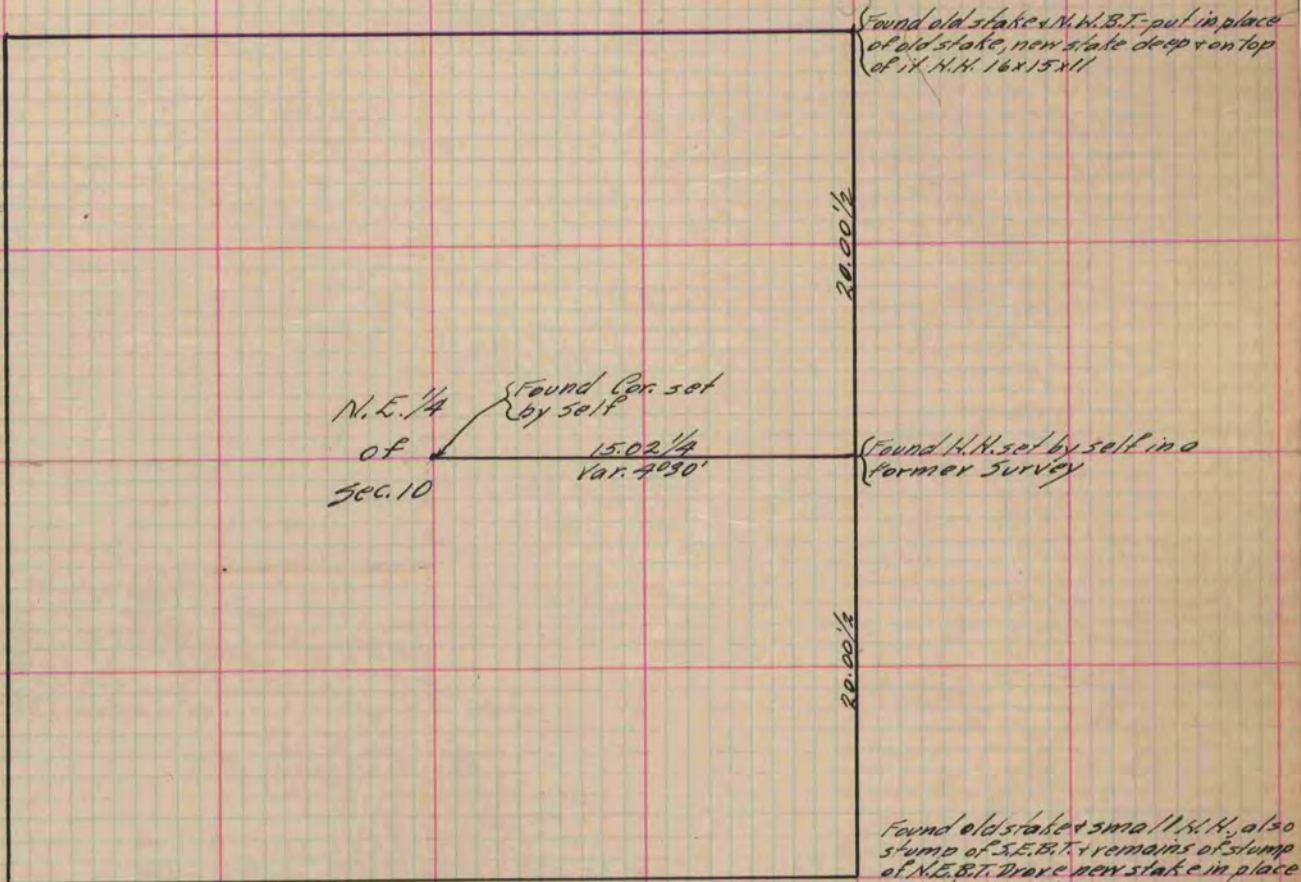 Found old stake & N.W.B.T.-put in place
of old stake, new stake deep & on top
of it H.H. 16x15x11
20.00 1/2
N.E. 1/4
of
Sec. 10
Found Cor. set
by self
15.02 1/4
Var. 4°30'
Found H.H. set by self in a
former Survey
20.00 1/2
Found old stake & small H.H., also
stump of S.E.B.T. & remains of stump
of N.E.B.T. Drove new stake in place